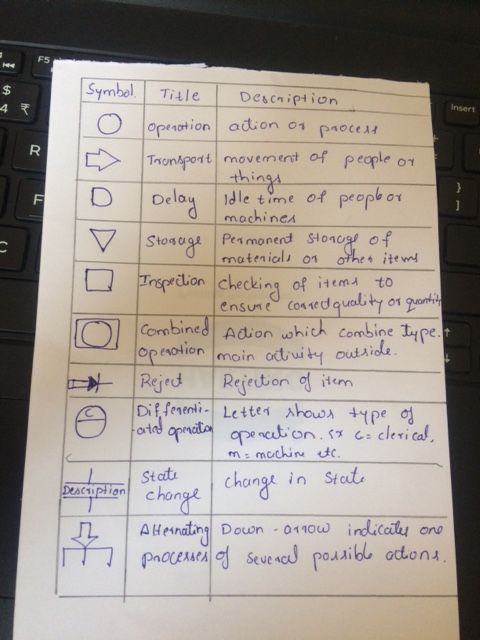 Symbol. Title Description
Operation action or process
Transport movement of people or
things
Delay Idle time of people or
machines
Storage Permanent storage of
materials or other items
Inspection checking of items to
ensure correct quality or quantity
Combined Action which combine type.
operation main activity outside.
Reject Rejection of item
C Differenti- Letter shows type of
-ated operation operation. sx C = clerical,
m = machine etc.
Description State change in state
change
Alternating Down-arrow indicates one
processes of several possible actions.
F5
$
4 ₹
R
F
C
Insert
}
]